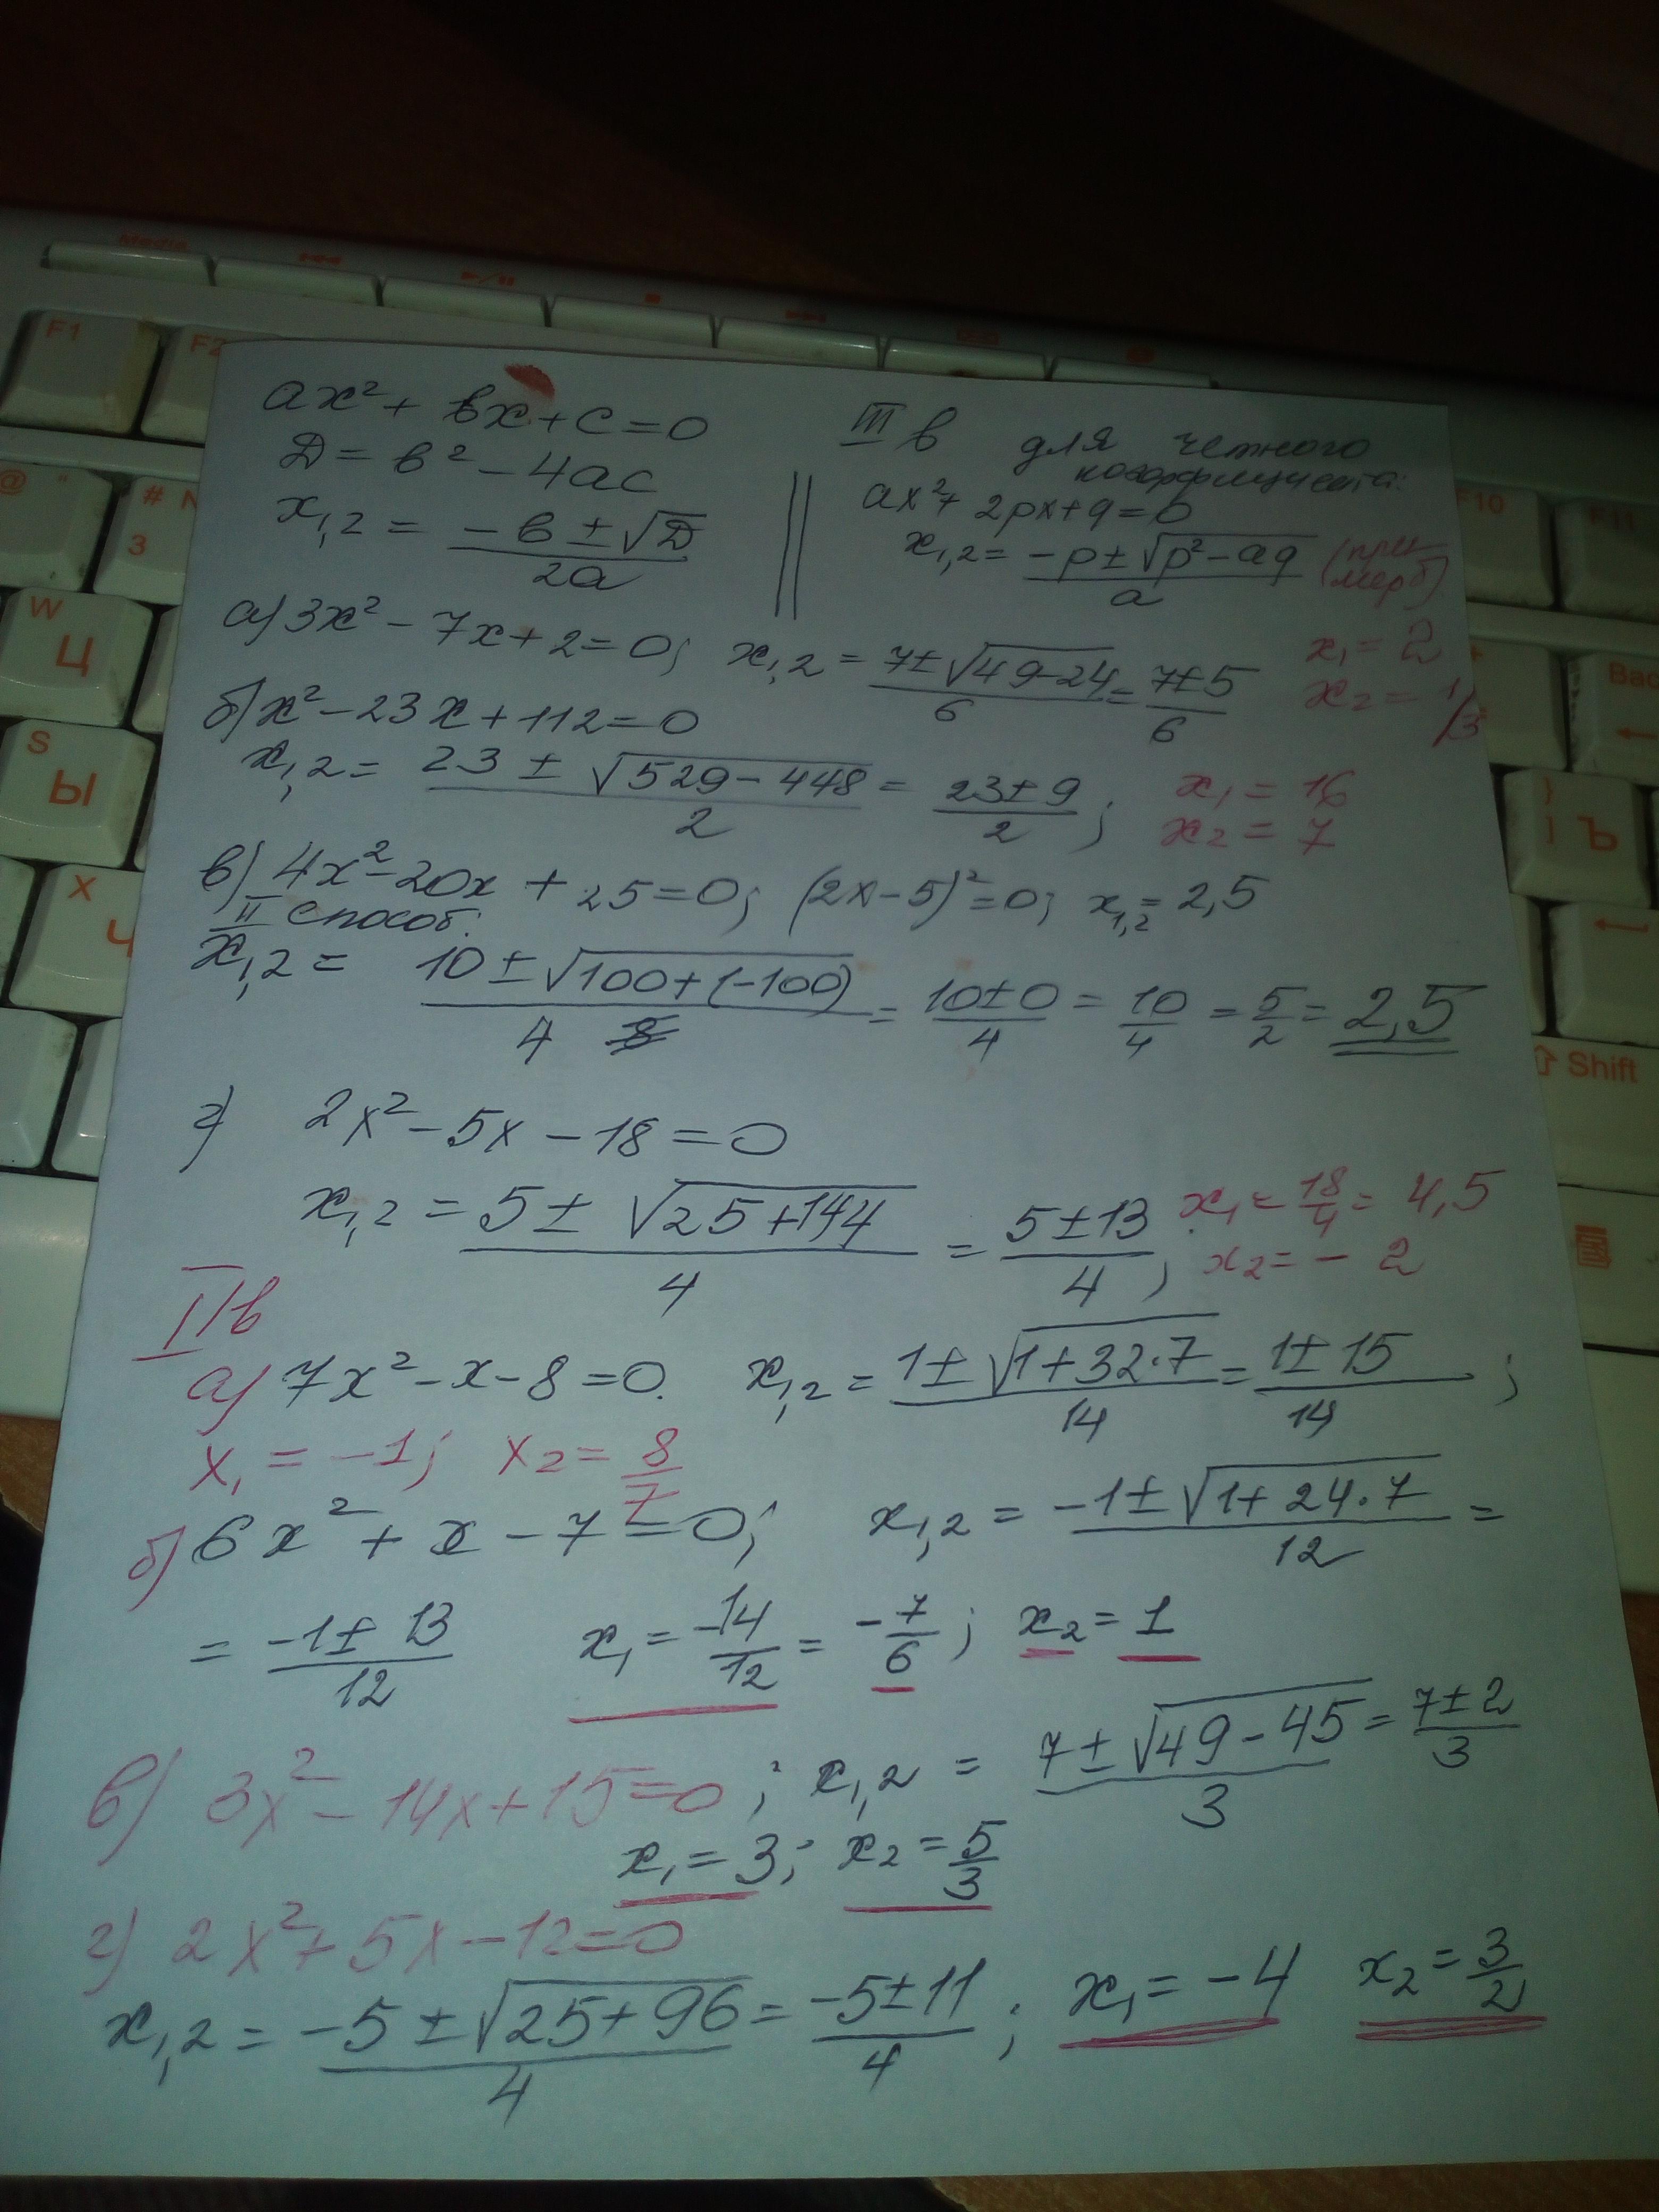 Media
F1
F2
@ "
#
3
W
Ц
S
Ы
X
Ч
F10
F11
Bac
}
]
Ъ
⇧ Shift
ax² + bx + c = 0
D = b² - 4ac
x₁,₂ = (-b ± √D)/2a
III в для четного
коэффициента:
ax² + 2px + q = 0
x₁,₂ = (-p ± √(p² - aq))/a
а) 3x² - 7x + 2 = 0; x₁,₂ = (7 ± √(49-24))/6 = (7 ± 5)/6
x₁ = 2
x₂ = 1/3
б) x² - 23x + 112 = 0
x₁,₂ = (23 ± √(529 - 448))/2 = (23 ± 9)/2;
x₁ = 16
x₂ = 7
в) 4x² - 20x + 25 = 0; (2x - 5)² = 0; x₁,₂ = 2,5
II способ:
x₁,₂ = (10 ± √(100 + (-100)))/4 = (10 ± 0)/4 = 10/4 = 5/2 = 2,5
г) 2x² - 5x - 18 = 0
x₁,₂ = (5 ± √(25 + 144))/4 = (5 ± 13)/4;
x₁ = 18/4 = 4,5
x₂ = -2
II в
а) 7x² - x - 8 = 0. x₁,₂ = (1 ± √(1 + 32·7))/14 = (1 ± 15)/14;
x₁ = -1; x₂ = 8/7
б) 6x² + x - 7 = 0; x₁,₂ = (-1 ± √(1 + 24·7))/12 =
= (-1 ± 13)/12 x₁ = -14/12 = -7/6; x₂ = 1
в) 3x² - 14x + 15 = 0; x₁,₂ = (7 ± √(49 - 45))/3 = (7 ± 2)/3
x₁ = 3; x₂ = 5/3
г) 2x² + 5x - 12 = 0
x₁,₂ = (-5 ± √(25 + 96))/4 = (-5 ± 11)/4; x₁ = -4 x₂ = 3/2